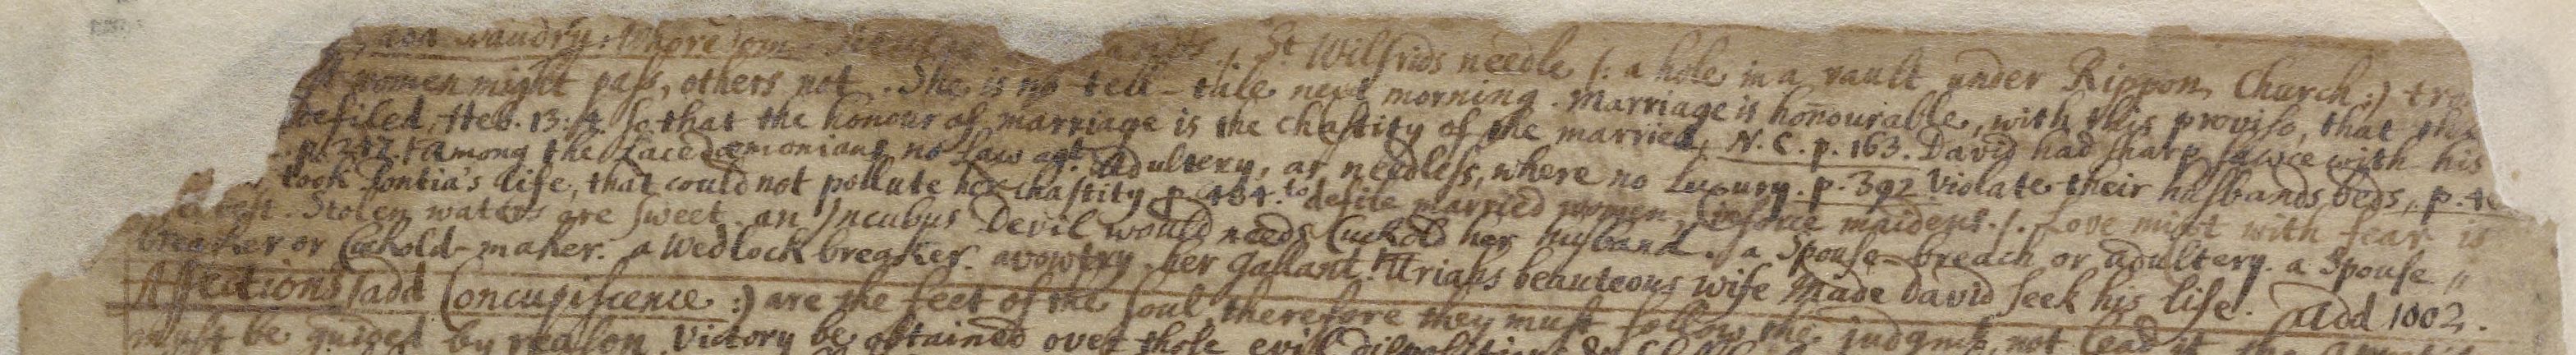 and waudry: Whoredom St Wilfrids needle /: a hole in a vault under Rippon Church :)
women might pass, others not. She is no tell-tale next morning. Marriage is honourable, with this proviso, that the
defiled, Heb. 13:4. so that the honour of marriage is the chastity of the married, N. C. p. 163. David had sharp sawce with his
p. 242. + Among the Lacedæmonians no Law agt. Adultery, as needless, where no Luxury. p. 392 Violate their husbands beds, p. 4
took Pontia's life, that could not pollute her chastity p. 484. to defile married women, inforce maidens. /. Love mixt with fear is
Stolen waters are sweet. an Incubus Devil would needs Cuckold her husband. a Spouse-breach or adultery. a Spouse "
breaker or Cuckold-maker. a Wedlock breaker. avowtry. her Gallant. + Uriahs beauteous wife Made David seek his life. Add 1002.
Affections /add Concupiscence :) are the feet of the soul, therefore they must follow the judgmt, not lead it.
must be guided by reason. Victory be obtained over those evil dispositions